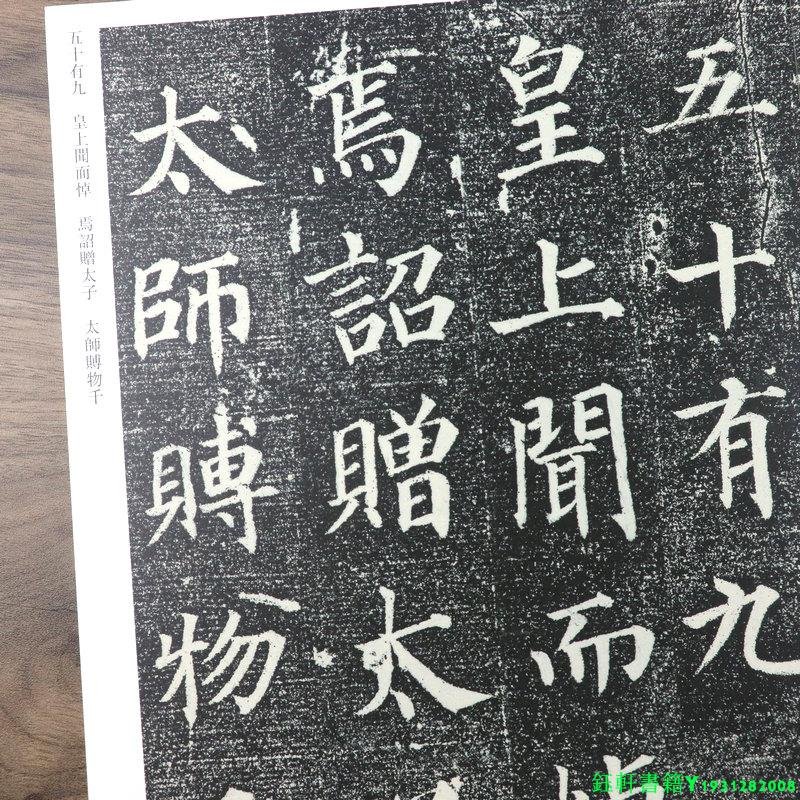 五十有九
皇上聞而
焉詔贈太
太師賻物
五十有九 皇上聞而悼 焉詔贈太子 太師賻物千
鈺軒書籍Y1931282008